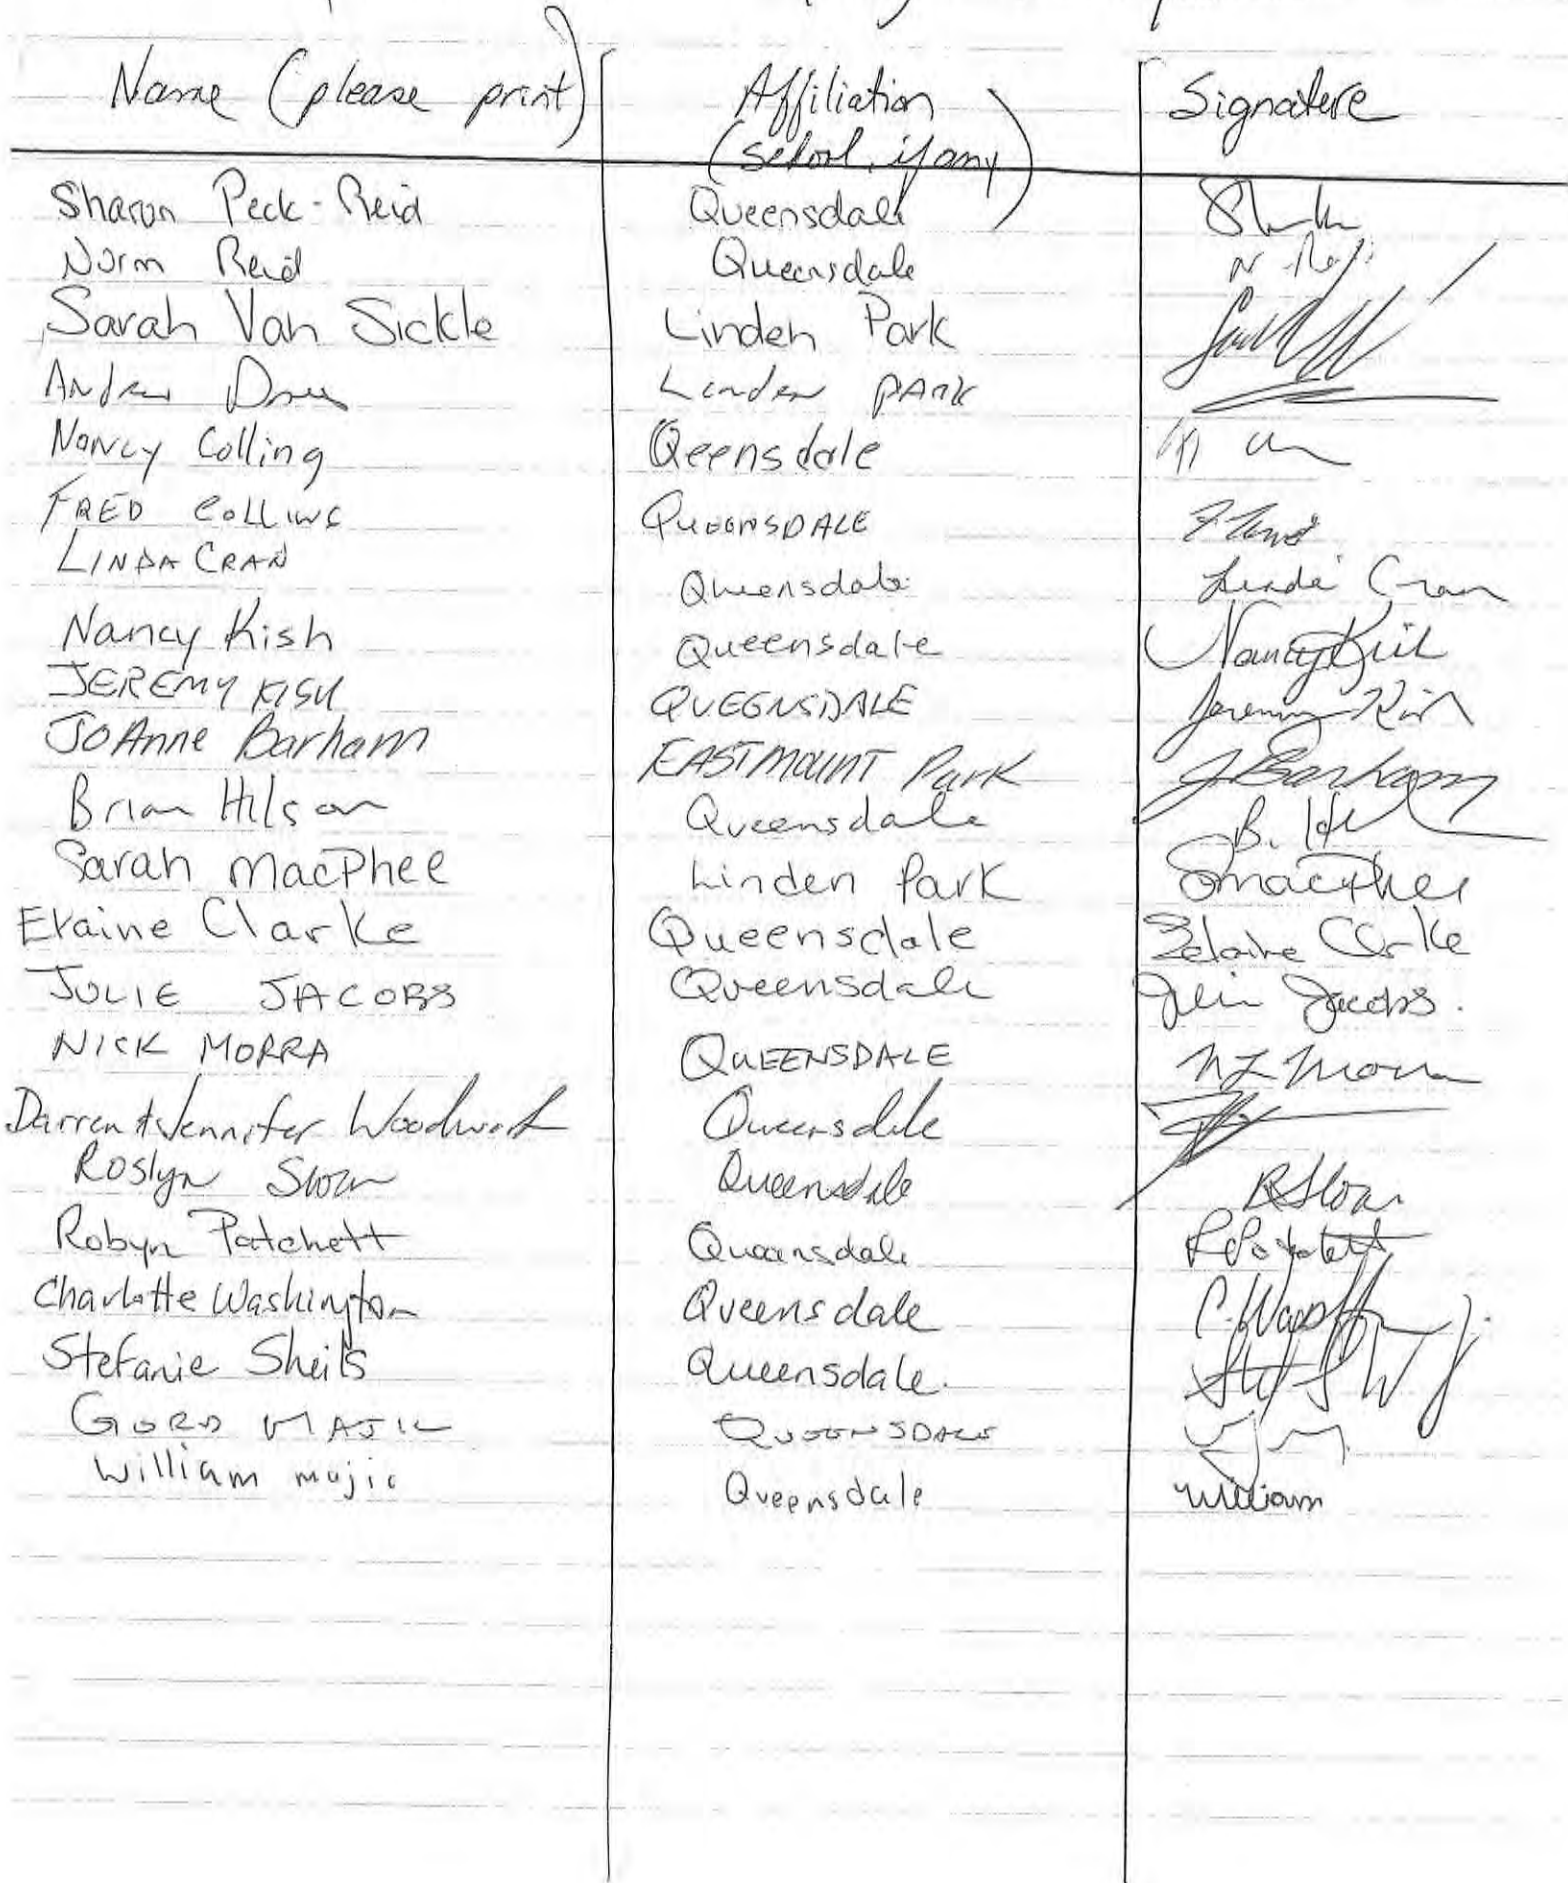 Name (please print) Affiliation (school, if any) Signature
Sharon Peck-Reid Queensdale
Norm Reid Queensdale N. Reid
Sarah Van Sickle Linden Park
Andrew Linden PARK
Nancy Colling Qeensdale
FRED COLLING QUEENSDALE
LINDA CRAN Queensdale Linda Cran
Nancy Kish Queensdale Nancy Kish
JEREMY KISH QUEENSDALE Jeremy Kish
JoAnne Barham EASTMOUNT Park J. Barham
Brian Hilson Queensdale B. Hil
Sarah MacPhee Linden Park SMacPhee
Elaine Clarke Queensdale Elaine Clarke
JULIE JACOBS Queensdale Julie Jacobs.
NICK MORRA QUEENSDALE N Morra
Darren & Jennifer Woodwork Queensdale
Roslyn Sloan Queensdale R Sloan
Robyn Patchett Queensdale R Patchett
Charlotte Washington Queensdale
Stefanie Sheils Queensdale.
GORD MAJIC QUEENSDALE
William mujic Queensdale William